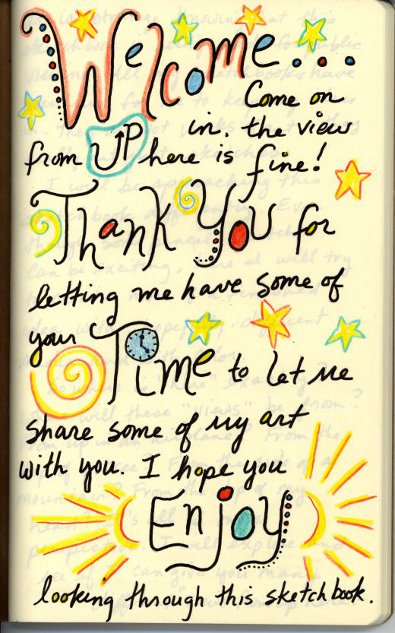 Welcome...
Come on
in. the view
from UP here is fine!
Thank You for
letting me have some of
your Time to let me
share some of my art
with you. I hope you
Enjoy
looking through this sketchbook.